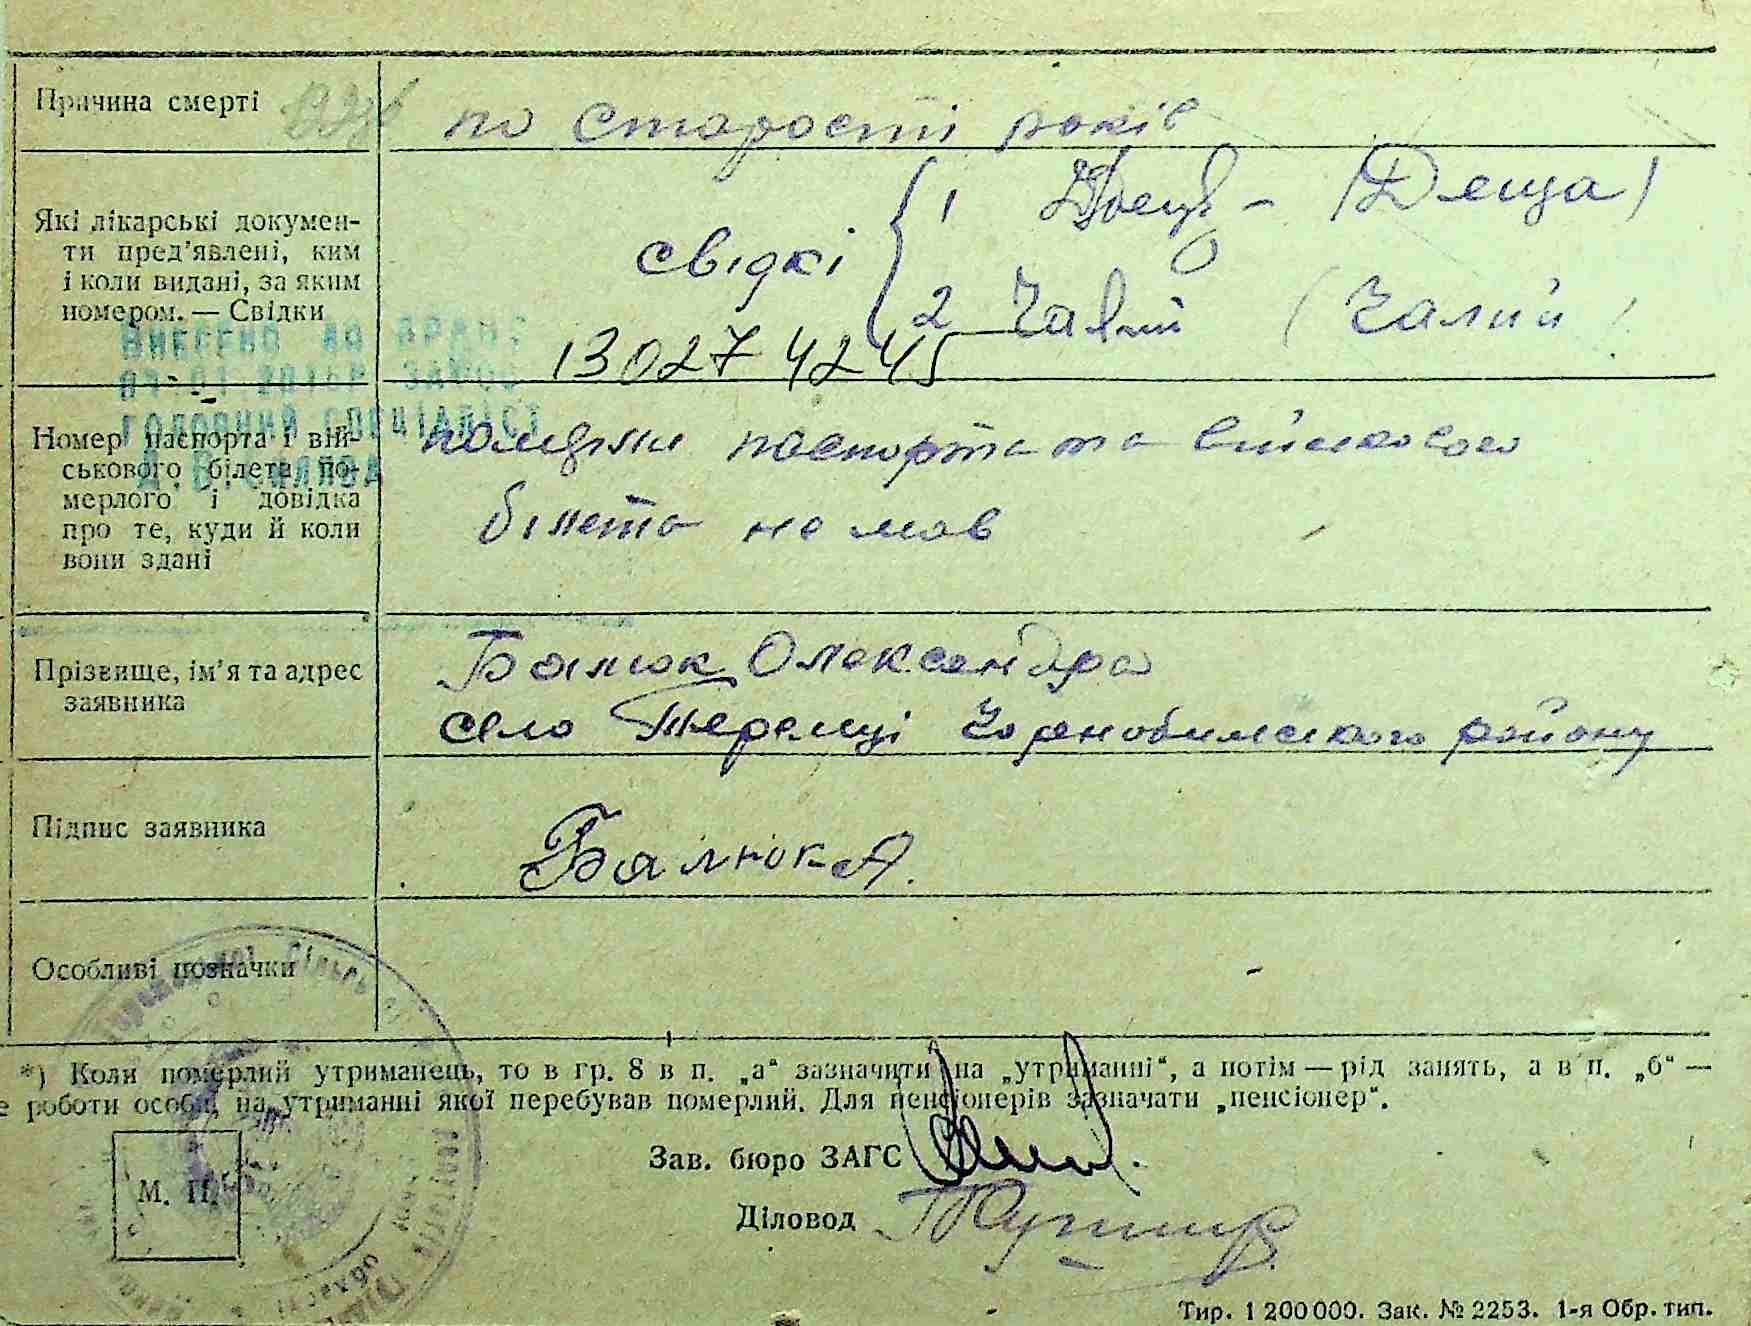 Причина смерті
по старості років
Які лікарські докумен-
ти пред'явлені, ким
і коли видані, за яким
номером. — Свідки
свідкі { 1 — (Деща)
2 Чалий (Чалий)
130274245
ВНЕСЕНО ДО
ГОЛОВНИЙ СПЕЦІАЛІСТ
Номер паспорта і вій-
ськового білета по-
мерлого і довідка
про те, куди й коли
вони здані
паспорта та військового
білета не мав
Прізвище, ім'я та адрес
заявника
Балюк Олександра
село Теремці Чорнобильського району
Підпис заявника
Балюк А.
Особливі позначки
*) Коли померлий утриманець, то в гр. 8 в п. „а“ зазначити „на „утриманні“, а потім — рід занять, а в п. „б“ —
е роботи особи, на утриманні якої перебував померлий. Для пенсіонерів зазначати „пенсіонер“.
Зав. бюро ЗАГС
М. П.
Діловод
Тир. 1 200 000. Зак. № 2253. 1-я Обр. тип.